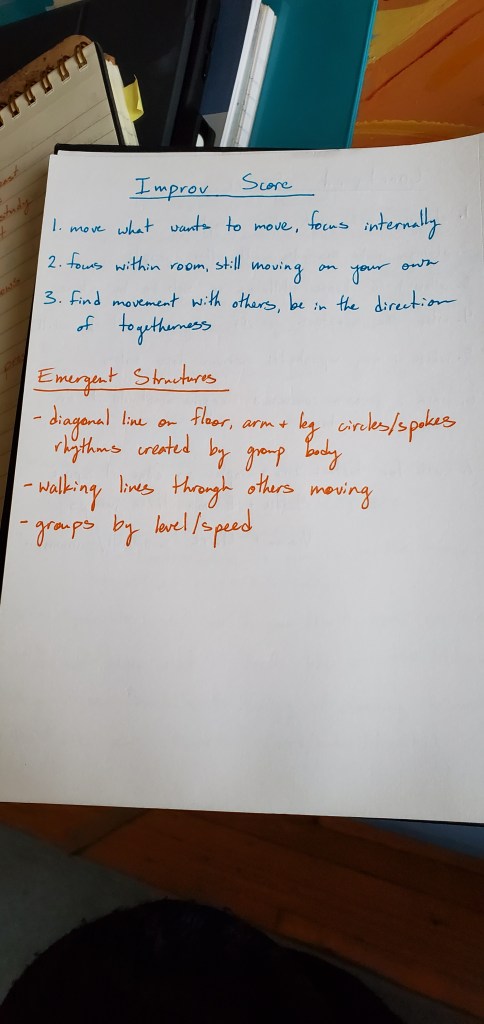 Improv Score
1. move what wants to move, focus internally
2. focus within room, still moving on your own
3. find movement with others, be in the direction
of togetherness
Emergent Structures
- diagonal line on floor, arm + leg circles/spokes
rhythms created by group body
- walking lines through others moving
- groups by level/speed
study